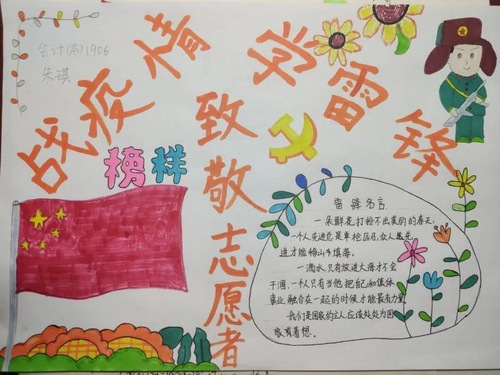 会计(本)1906
朱琪
战疫情 学雷锋
致敬志愿者
榜样
雷锋名言
一朵鲜花打扮不出美丽的春天,
一个人先进总是单枪匹马,众人先
进才能移山填海。
一滴水只有放进大海才不会
干涸,一个人只有当他把自己和集体
事业融合在一起的时候才能最有力量
我们是国家的主人应该处处为国
家着想。